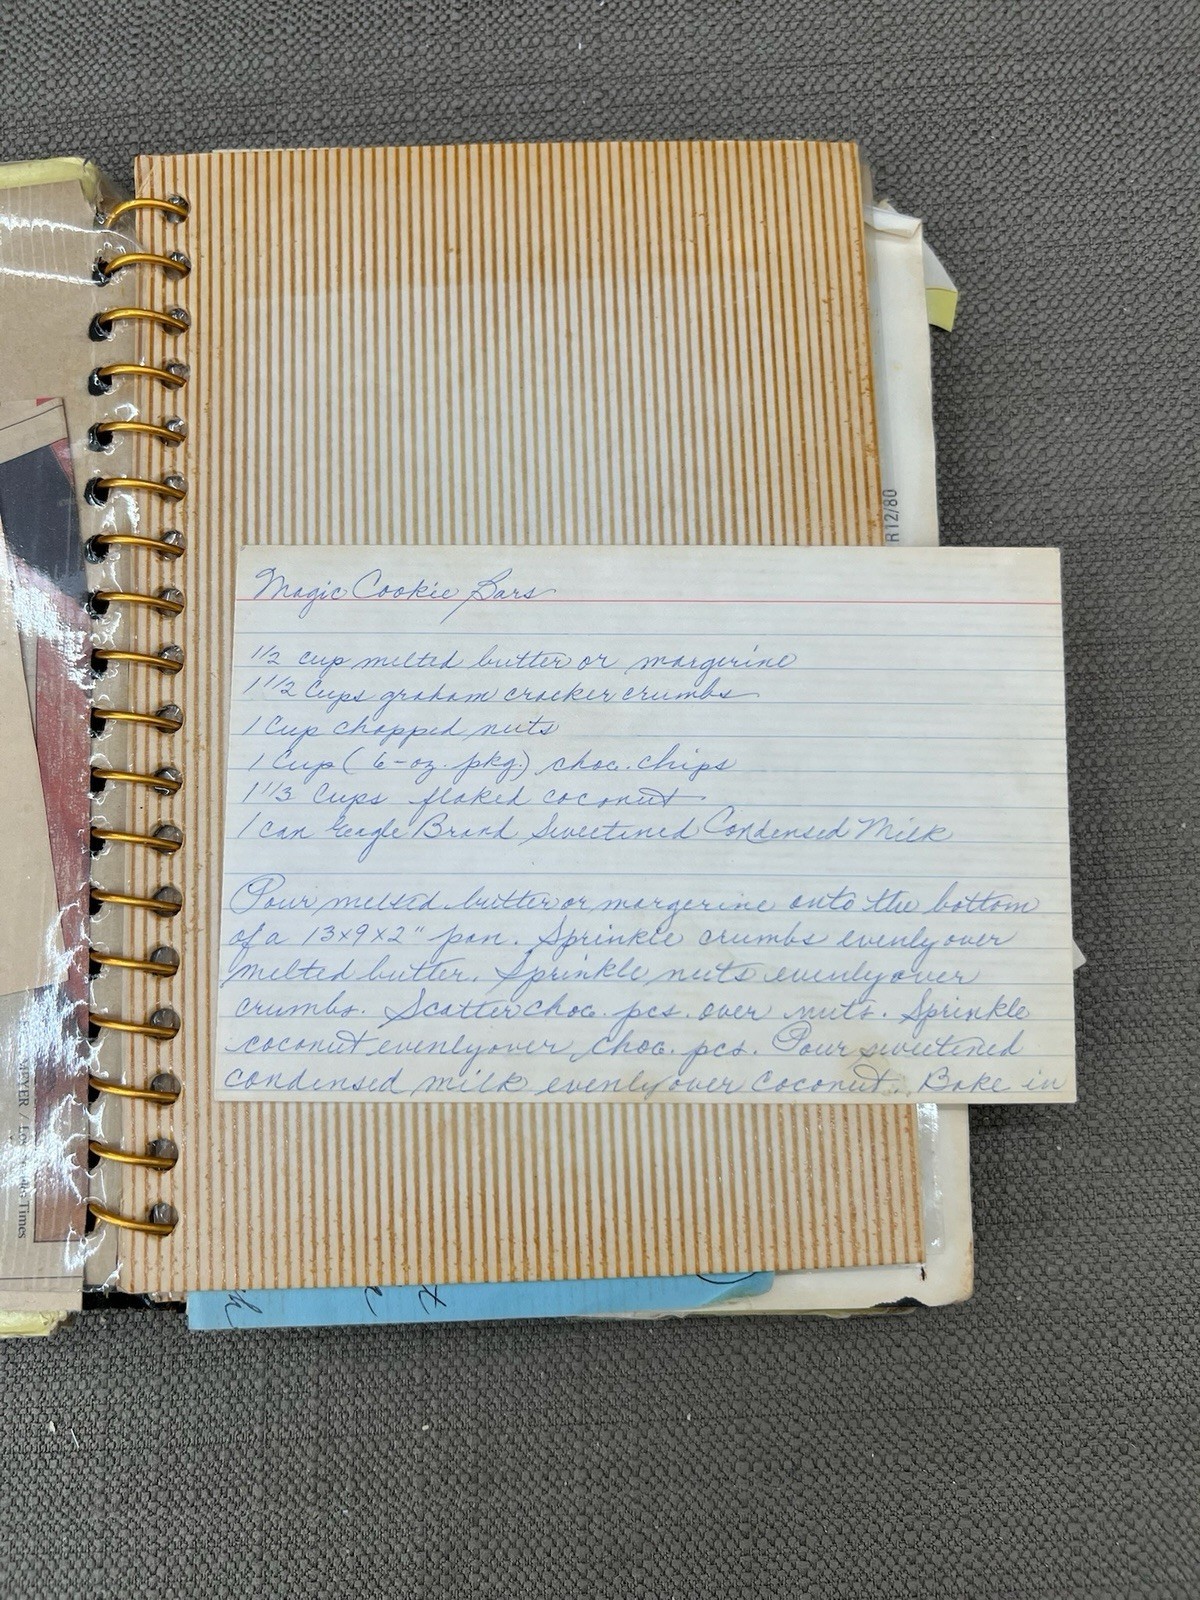 R12/80
Magic Cookie Bars
1/2 cup melted butter or margerine
1 1/2 Cups graham cracker crumbs
1 Cup chopped nuts
1 Cup (6-oz. pkg.) choc. chips
1 1/3 Cups flaked coconut
1 can Eagle Brand Sweetened Condensed Milk
Pour melted butter or margerine onto the bottom
of a 13x9x2" pan. Sprinkle crumbs evenly over
melted butter. Sprinkle nuts evenly over
crumbs. Scatter choc. pcs. over nuts. Sprinkle
coconut evenly over choc. pcs. Pour sweetened
condensed milk evenly over coconut. Bake in
MEYER / Times